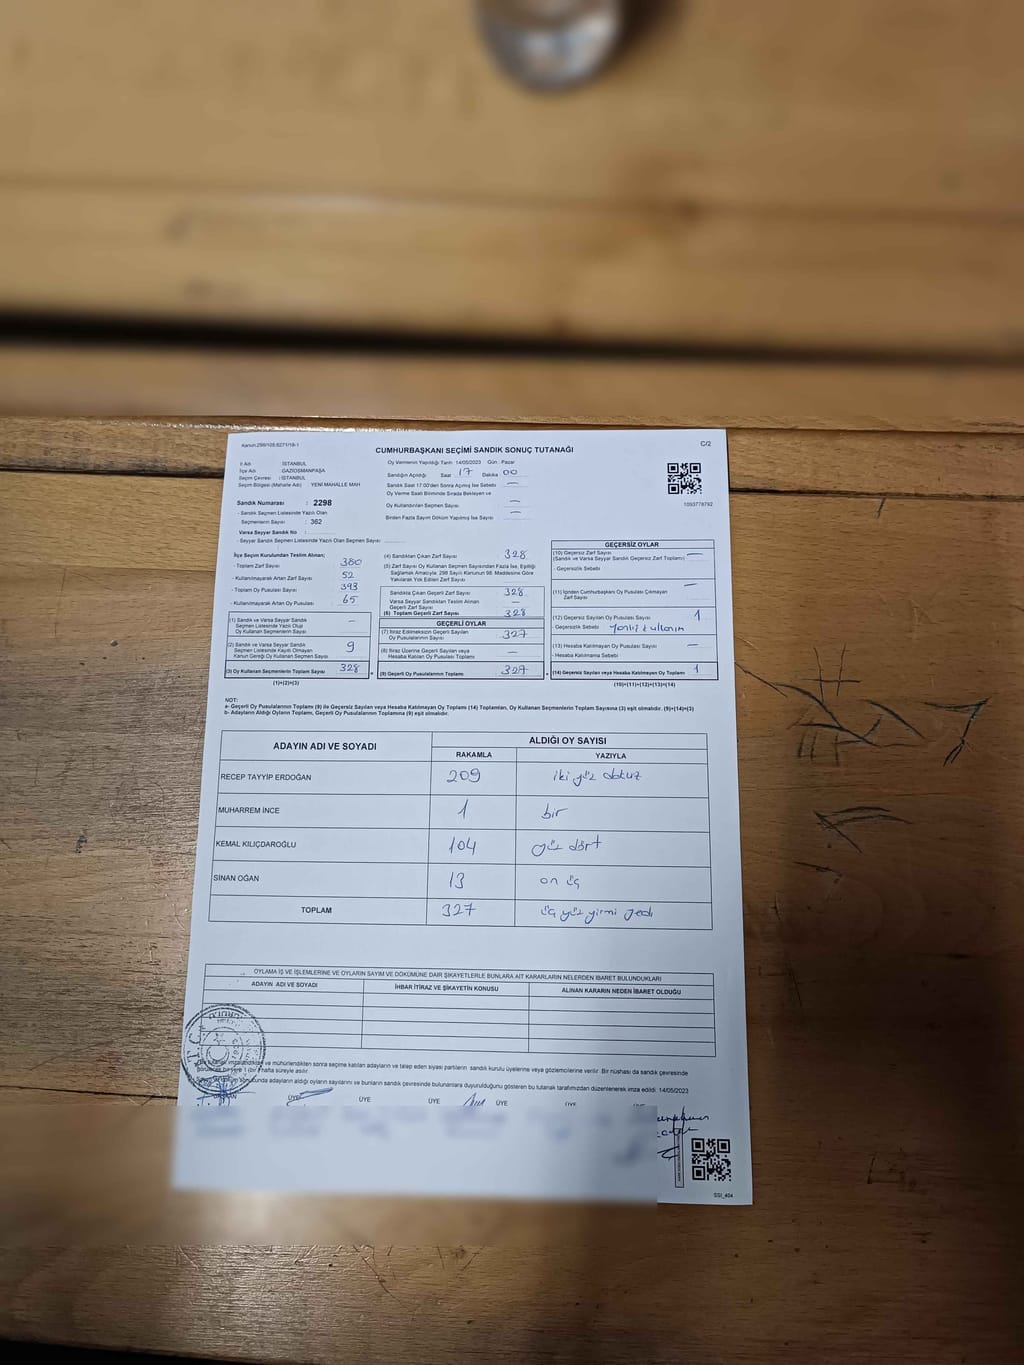 Kanun:298/105;6271/18-1
C/2
CUMHURBAŞKANI SEÇİMİ SANDIK SONUÇ TUTANAĞI
İl Adı : İSTANBUL
İlçe Adı : GAZİOSMANPAŞA
Seçim Çevresi : İSTANBUL
Seçim Bölgesi (Mahalle Adı) : YENİ MAHALLE MAH
Oy Vermenin Yapıldığı Tarih: 14/05/2023 Gün : Pazar
Sandığın Açıldığı Saat 17 Dakika 00
Sandık Saat 17:00'den Sonra Açılmış İse Sebebi —
Oy Verme Saati Bitiminde Sırada Bekleyen ve
Oy Kullandırılan Seçmen Sayısı —
Birden Fazla Sayım Döküm Yapılmış İse Sayısı —
1093778792
Sandık Numarası : 2298
- Sandık Seçmen Listesinde Yazılı Olan
Seçmenlerin Sayısı : 362
Varsa Seyyar Sandık No :
- Seyyar Sandık Seçmen Listesinde Yazılı Olan Seçmen Sayısı
İlçe Seçim Kurulundan Teslim Alınan;
- Toplam Zarf Sayısı 380
- Kullanılmayarak Artan Zarf Sayısı 52
- Toplam Oy Pusulası Sayısı 393
- Kullanılmayarak Artan Oy Pusulası 65
(1) Sandık ve Varsa Seyyar Sandık
Seçmen Listesinde Yazılı Olup
Oy Kullanan Seçmenlerin Sayısı –
(2) Sandık ve Varsa Seyyar Sandık
Seçmen Listesinde Kayıtlı Olmayan
Kanun Gereği Oy Kullanan Seçmen Sayısı 9
(3) Oy Kullanan Seçmenlerin Toplam Sayısı 328
(1)+(2)=(3)
(4) Sandıktan Çıkan Zarf Sayısı 328
(5) Zarf Sayısı Oy Kullanan Seçmen Sayısından Fazla İse, Eşitliği
Sağlamak Amacıyla; 298 Sayılı Kanunun 98. Maddesine Göre
Yakılarak Yok Edilen Zarf Sayısı
Sandıkta Çıkan Geçerli Zarf Sayısı 328
Varsa Seyyar Sandıktan Teslim Alınan
Geçerli Zarf Sayısı —
(6) Toplam Geçerli Zarf Sayısı 328
GEÇERLİ OYLAR
(7) İtiraz Edilmeksizin Geçerli Sayılan
Oy Pusulalarının Sayısı 327
(8) İtiraz Üzerine Geçerli Sayılan veya
Hesaba Katılan Oy Pusulası Toplamı —
(9) Geçerli Oy Pusulalarının Toplamı 327
GEÇERSİZ OYLAR
(10) Geçersiz Zarf Sayısı
(Sandık ve Varsa Seyyar Sandık Geçersiz Zarf Toplamı) —
- Geçersizlik Sebebi
(11) İçinden Cumhurbaşkanı Oy Pusulası Çıkmayan
Zarf Sayısı —
(12) Geçersiz Sayılan Oy Pusulası Sayısı 1
- Geçersizlik Sebebi Yanlış kullanım
(13) Hesaba Katılmayan Oy Pusulası Sayısı —
- Hesaba Katılmama Sebebi
(14) Geçersiz Sayılan veya Hesaba Katılmayan Oy Toplamı 1
(10)+(11)+(12)+(13)=(14)
NOT:
a- Geçerli Oy Pusulaları (9) ile Geçersiz Sayılan veya Hesaba Katılmayan Oy Toplamı (14) Toplamları, Oy Kullanan Seçmenlerin Toplam Sayısına (3) eşit olmalıdır. (9)+(14)=(3)
b- Adayların Aldığı Oyların Toplamı, Geçerli Oy Pusulalarının Toplamına (9) eşit olmalıdır.
ADAYIN ADI VE SOYADI ALDIĞI OY SAYISI
RAKAMLA YAZIYLA
RECEP TAYYİP ERDOĞAN 209 iki yüz dokuz
MUHARREM İNCE 1 bir
KEMAL KILIÇDAROĞLU 104 yüz dört
SİNAN OĞAN 13 on üç
TOPLAM 327 üç yüz yirmi yedi
OYLAMA İŞ VE İŞLEMLERİNE VE OYLARIN SAYIM VE DÖKÜMÜNE DAİR ŞİKAYETLERLE BUNLARA AİT KARARLARIN NELERDEN İBARET BULUNDUKLARI
ADAYIN ADI VE SOYADI İHBAR İTİRAZ VE ŞİKAYETİN KONUSU ALINAN KARARIN NEDEN İBARET OLDUĞU
ve mühürlendikten sonra seçime katılan adayların ve talep eden siyasi partilerin sandık kurulu üyelerine veya gözlemcilerine verilir. Bir nüshası da sandık çevresinde
bir yere 1 (bir) hafta süreyle asılır.
sonucunda adayların aldığı oyların sayılarını ve bunların sandık çevresinde bulunanlara duyurulduğunu gösteren bu tutanak tarafımızdan düzenlenerek imza edildi. 14/05/2023
ÜYE ÜYE ÜYE ÜYE ÜYE
SSI_404